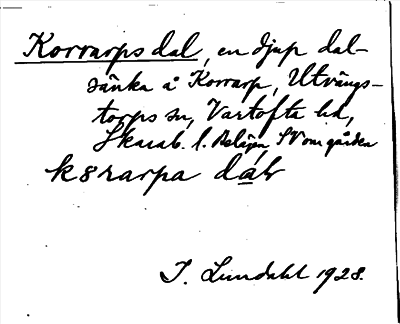 Korrarps dal, en djup dal-
sänka å Korrarp, Utvängs-
torps sn, Vartofta hd,
Skarab. l. Belägen SV om gården
kørarpa dalv
I. Lundahl 1928.